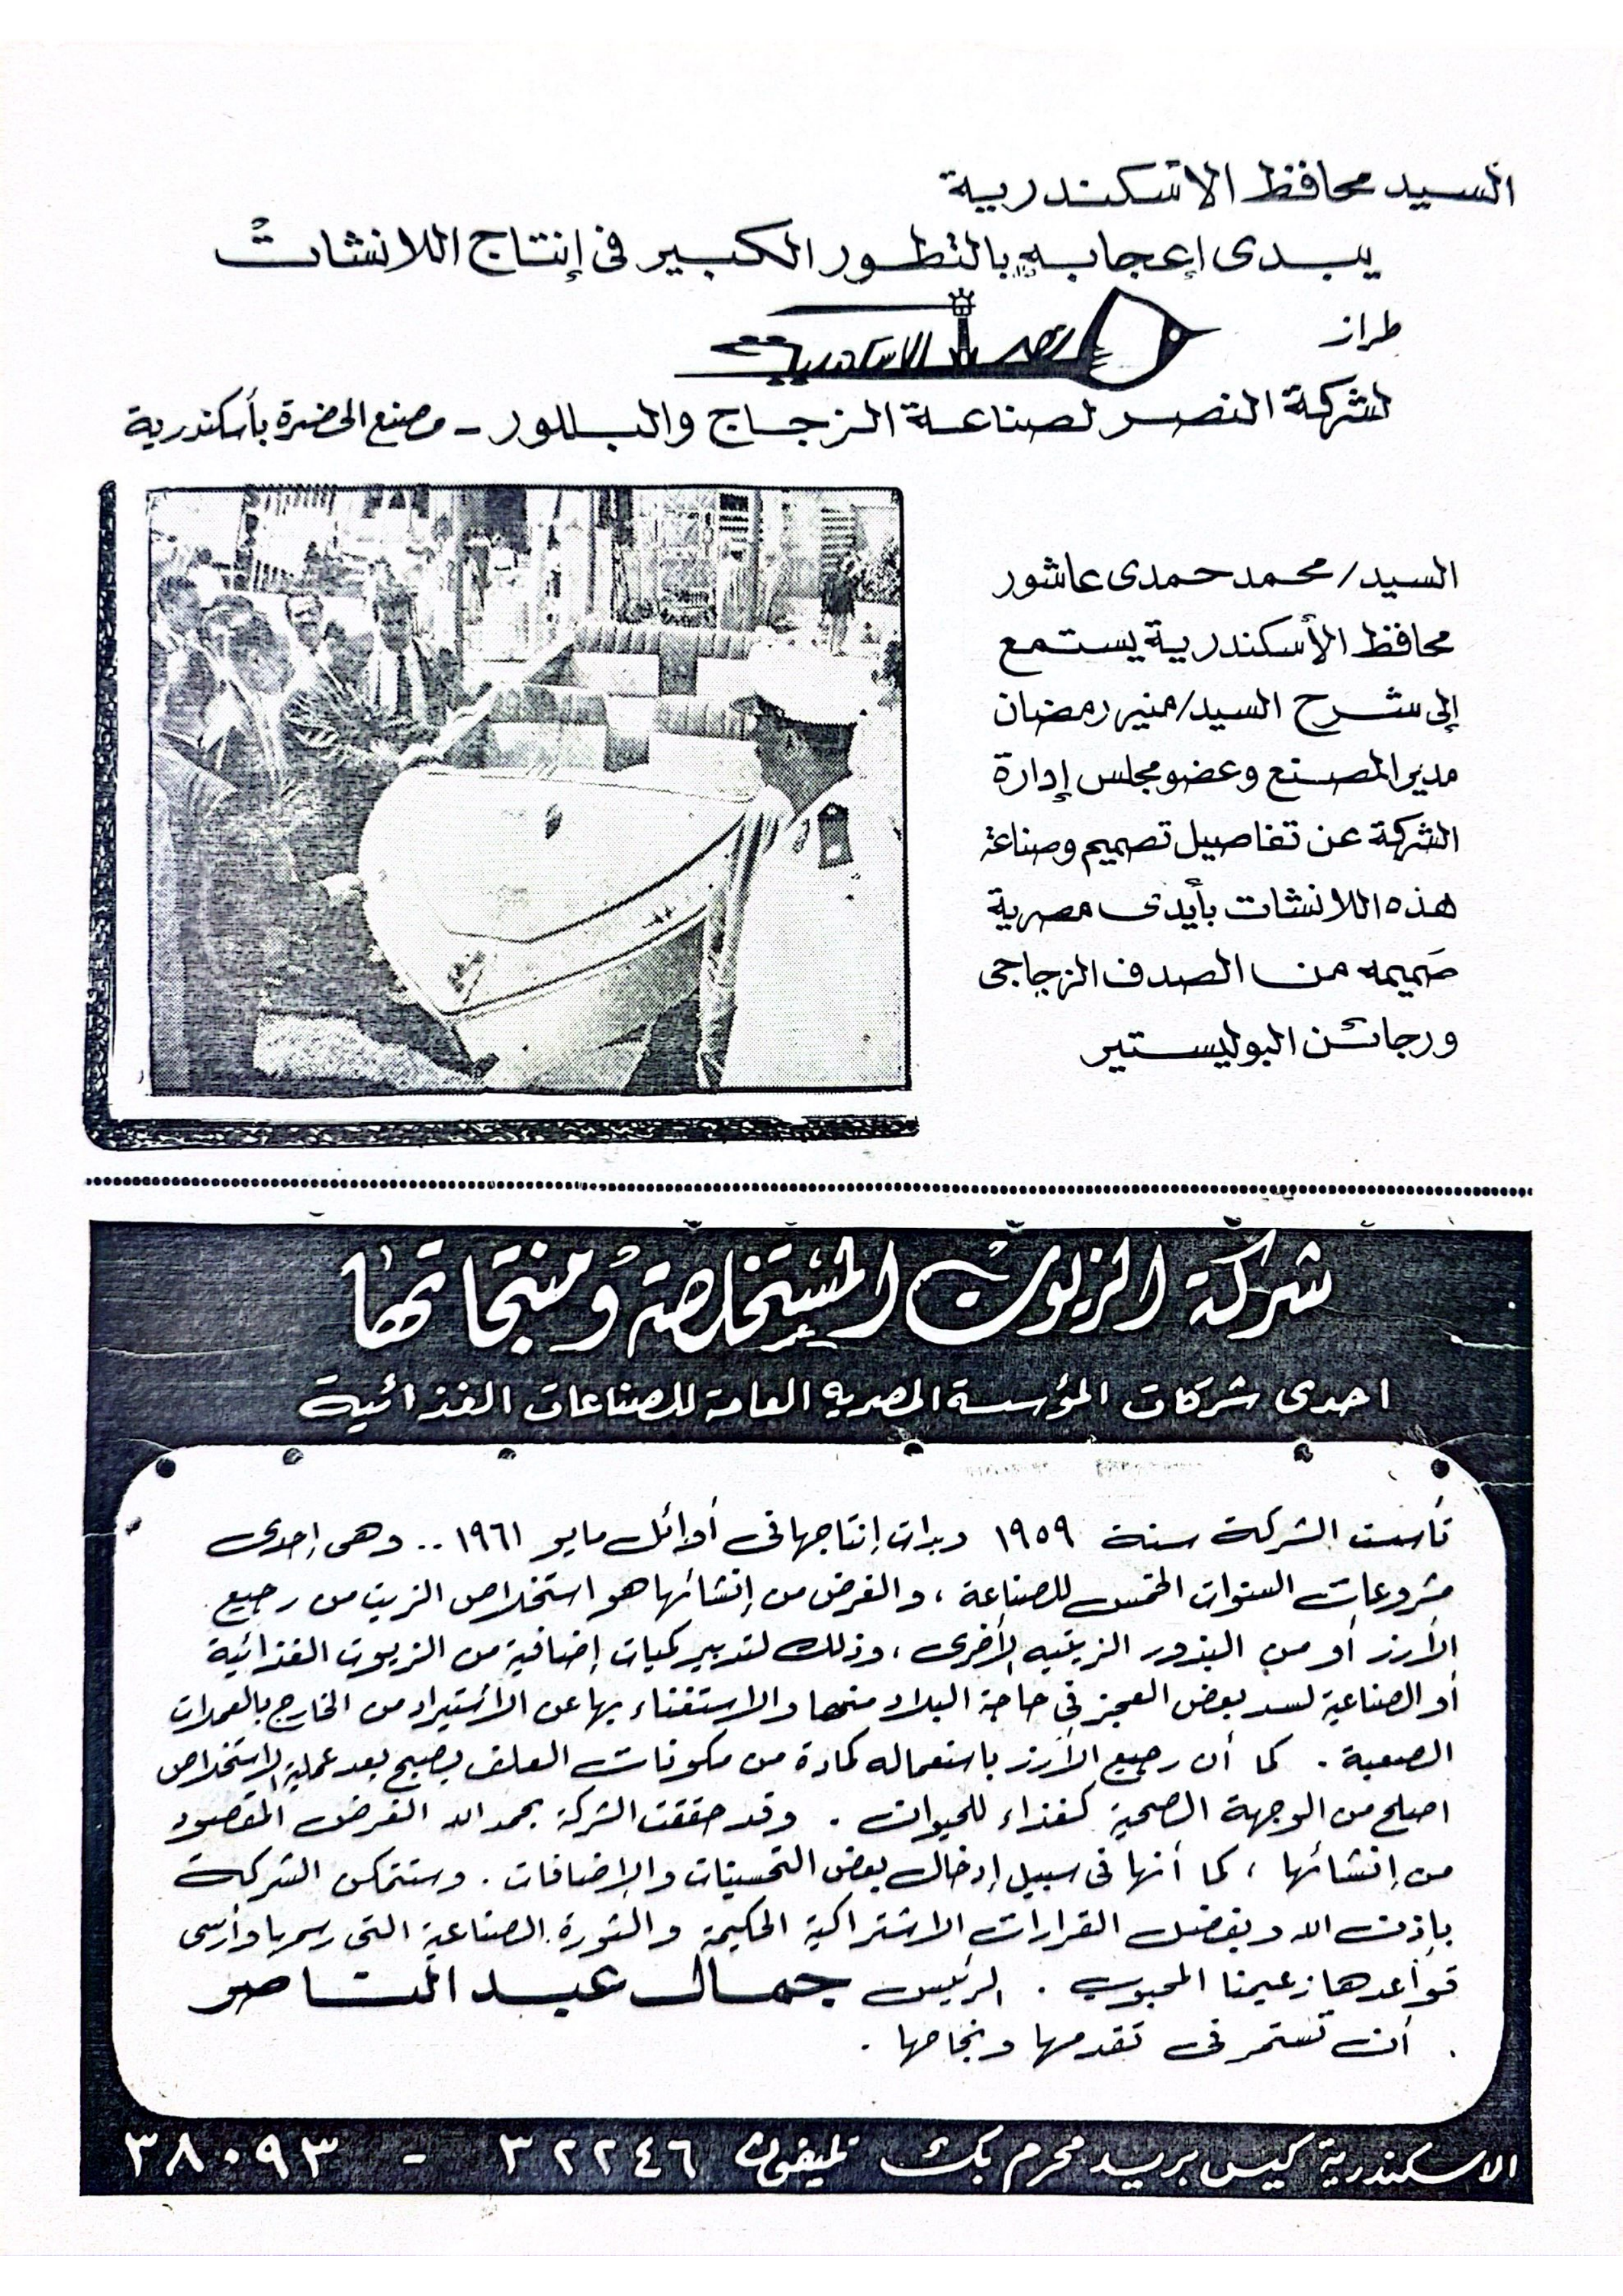 السيد محافظ الاسكندرية
يبدى إعجابه بالتطور الكبير فى إنتاج اللانشات
طراز
نصر الاسكندرية
لشركة النصر لصناعة الزجاج والبللور - مصنع الحضرة بأسكندرية
السيد/ محمد حمدى عاشور
محافظ الأسكندرية يستمع
إلى شرح السيد/ منير رمضان
مدير المصنع وعضو مجلس إدارة
الشركة عن تفاصيل تصميم وصناعة
هذه اللانشات بأيدى مصرية
صميمه من الصدف الزجاجى
ورجائن البوليستير
شركة الزيوت المستخلصة ومنتجاتها
احدى شركات المؤسسة المصريه العامة للصناعات الغذائية
تأسست الشركة سنة ١٩٥٩ وبدأت إنتاجها فى أوائل مايو ١٩٦١ .. وهى إحدى
مشروعات السنوات الخمس للصناعة ، والغرض من إنشائها هو استخلاص الزيت من رجيع
الأرز أو من البذور الزيتيه الأخرى ، وذلك لتدبير كميات إضافية من الزيوت الغذائية
أو الصناعية لسد بعض العجز فى حاجة البلاد منها والاستغناء بها عن الأستيراد من الخارج بالعملات
الصعبة . كما أن رجيع الأرز باستعماله كمادة من مكونات العلف يصبح بعد عملية الاستخلاص
اصلح من الوجهة الصحية كغذاء للحيوان . وقد حققت الشركة بحمد الله الغرض المقصود
من إنشائها ، كما أنها فى سبيل إدخال بعض التحسينات والإضافات . وستتمكن الشركة
بإذن الله وبفضل القرارات الاشتراكية الحكيمة والثورة الصناعية التى رسمها وأرسى
قواعدها زعيمنا المحبوب . الرئيس جمال عبد الناصر
. أن تستمر فى تقدمها ونجاحها .
الاسكندرية كيس بريد محرم بك تليفون ٣٢٢٤٦ - ٣٨٠٩٣